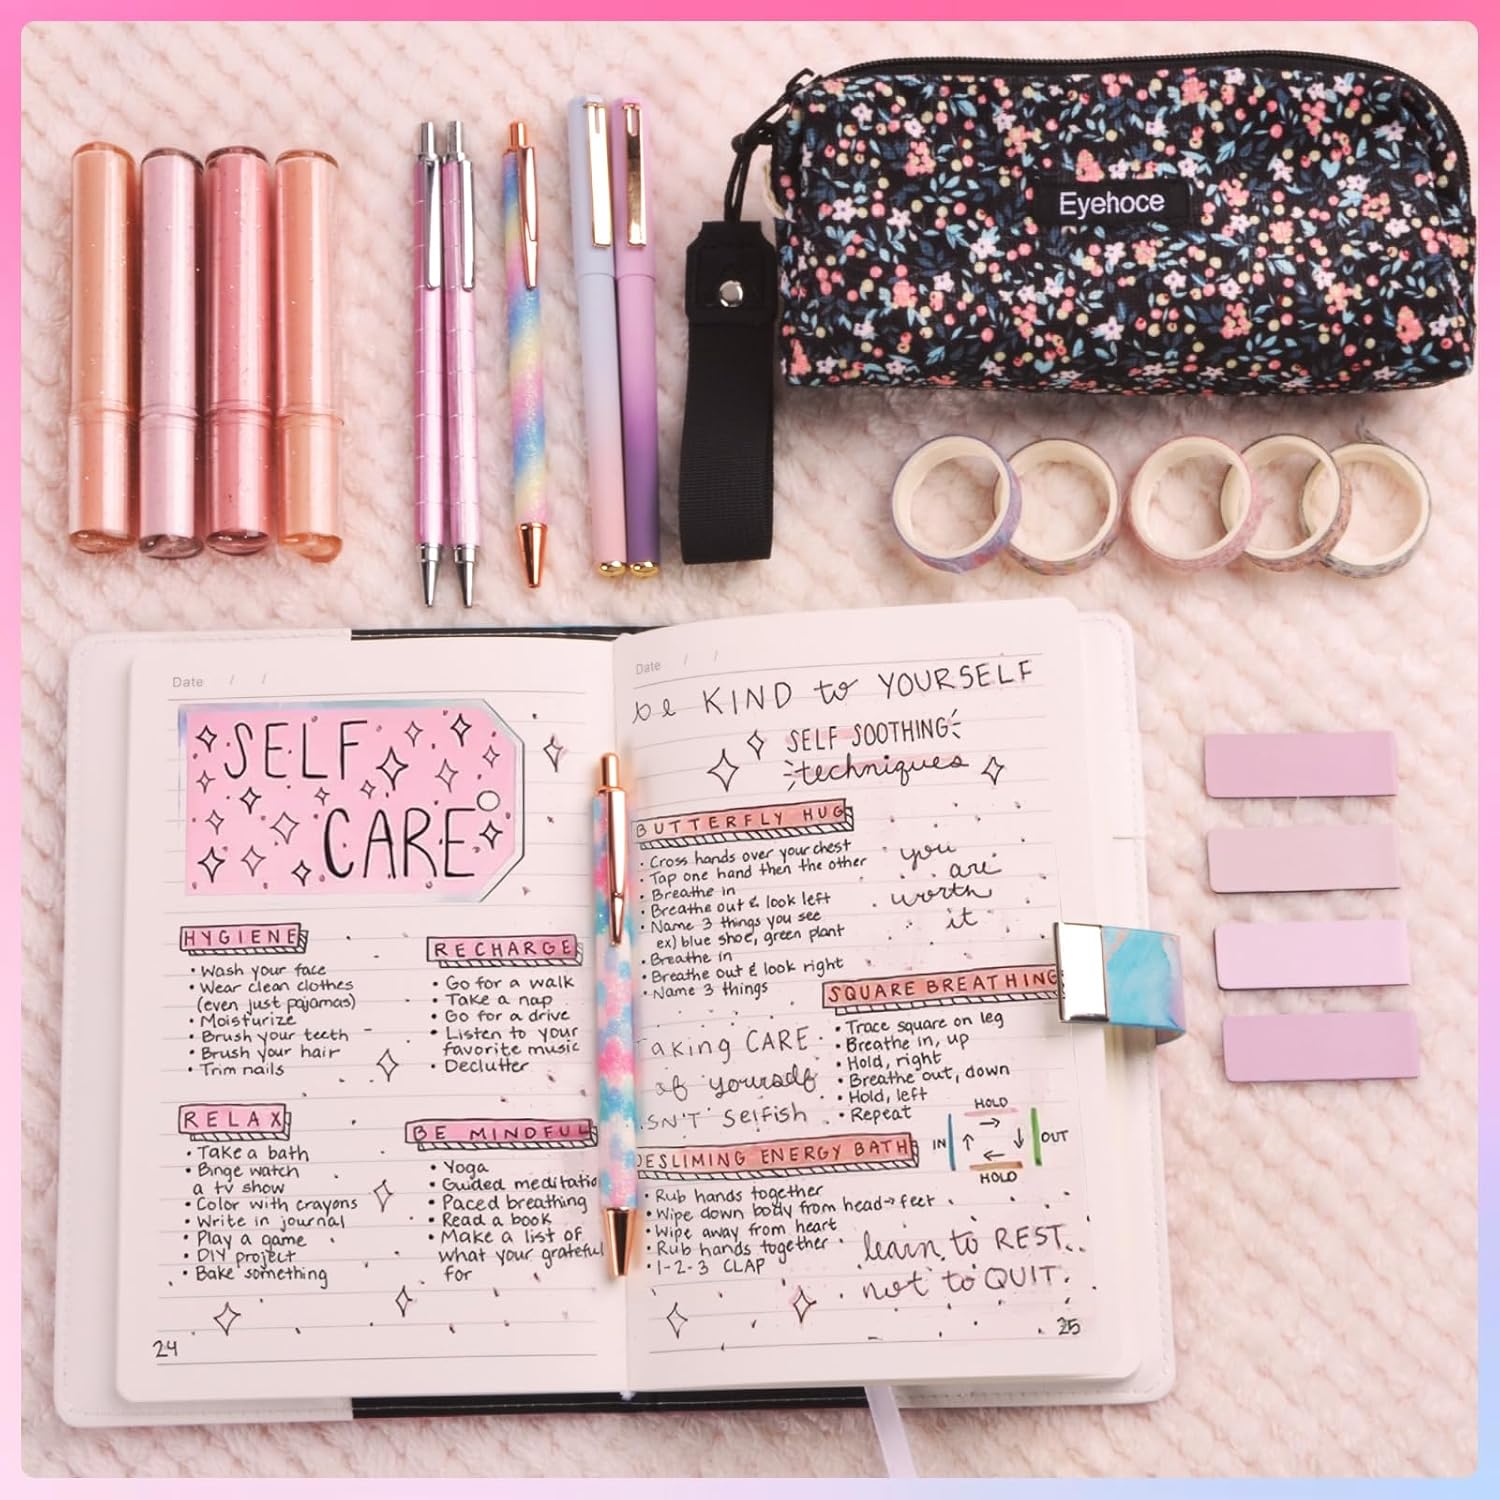 Eyehoce
Date / /
SELF
CARE
HYGIENE
• Wash your face
• Wear clean clothes
(even just pajamas)
• Moisturize
• Brush your teeth
• Brush your hair
• Trim nails
RECHARGE
• Go for a walk
• Take a nap
• Go for a drive
• Listen to your
favorite music
• Declutter
RELAX
• Take a bath
• Binge watch
a tv show
• Color with crayons
• Write in journal
• Play a game
• DIY project
• Bake something
BE MINDFUL
• Yoga
• Guided meditatio
• Paced breathing
• Read a book
• Make a list of
what your grateful
for
24
Date / /
be KIND to YOURSELF
SELF SOOTHING
techniques
BUTTERFLY HUG
• Cross hands over your chest
• Tap one hand then the other
• Breathe in
• Breathe out & look left
• Name 3 things you see
ex) blue shoe, green plant
• Breathe in
• Breathe out & look right
• Name 3 things
you
are
worth
it
SQUARE BREATHING
• Trace square on leg
• Breathe in, up
• Hold, right
• Breathe out, down
• Hold, left
• Repeat
aking CARE
of yourself
SN'T selfish
HOLD
IN
OUT
HOLD
DESLIMING ENERGY BATH
• Rub hands together
• Wipe down body from head→feet
• Wipe away from heart
• Rub hands together
• 1-2-3 CLAP
learn to REST..
not to QUIT.
25